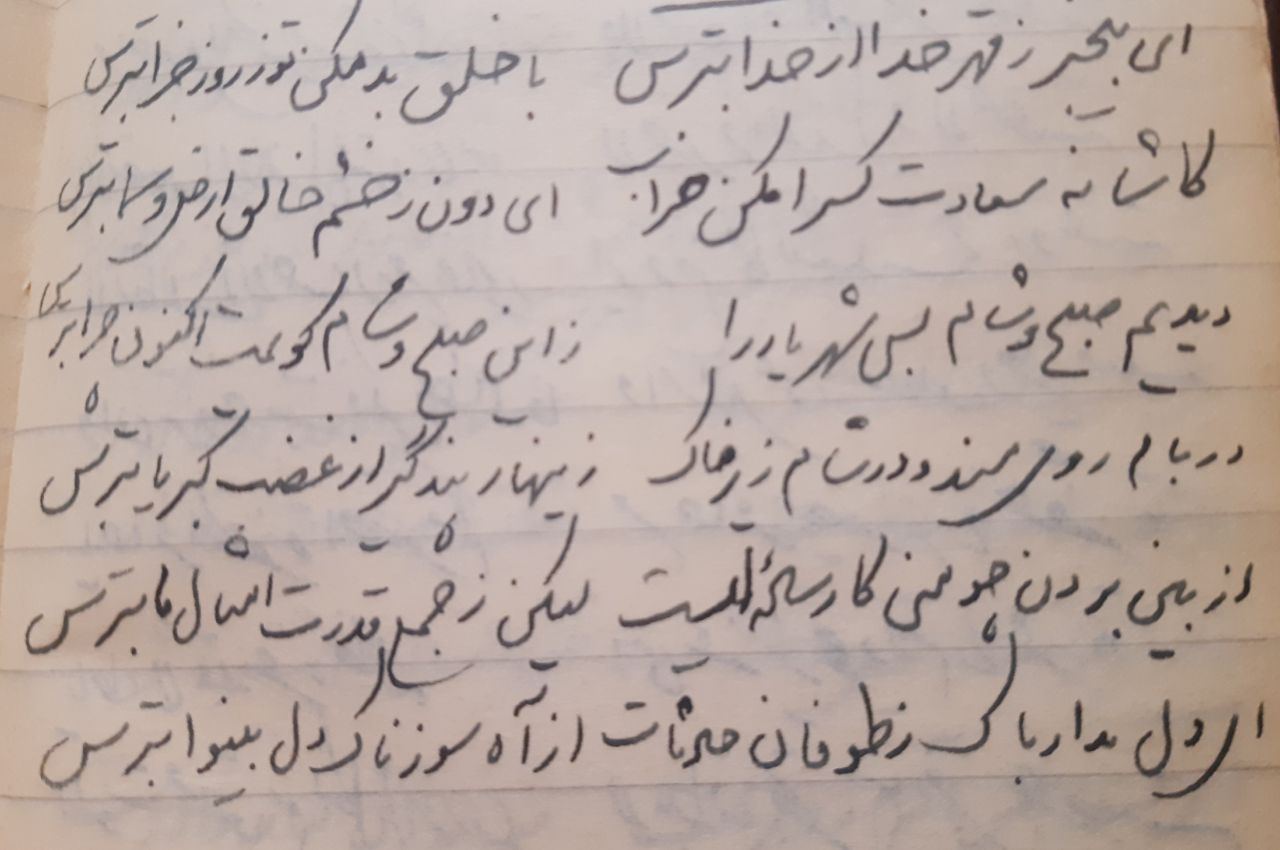 ای بیخبر ز قهر خدا از خدا بترس با خلق بد مکن تو ز روز جزا بترس
کاشانه سعادت کس را مکن خراب ای دون ز خشم خالق ارض و سما بترس
دیدیم صبح و شام بسی شهریار را ز این صبح و شام کو عمت اکنون
در بام روی مسند و در شام زیر خاک زینهار بنده گر از غضب کبریا بترس
از بین بردن چو منی کار سهل نیست لیکن ز جمع قدرت امثال ما بترس
ای دل مدار باک ز طوفان حادثات از آه سوزناک دل بینوا بترس